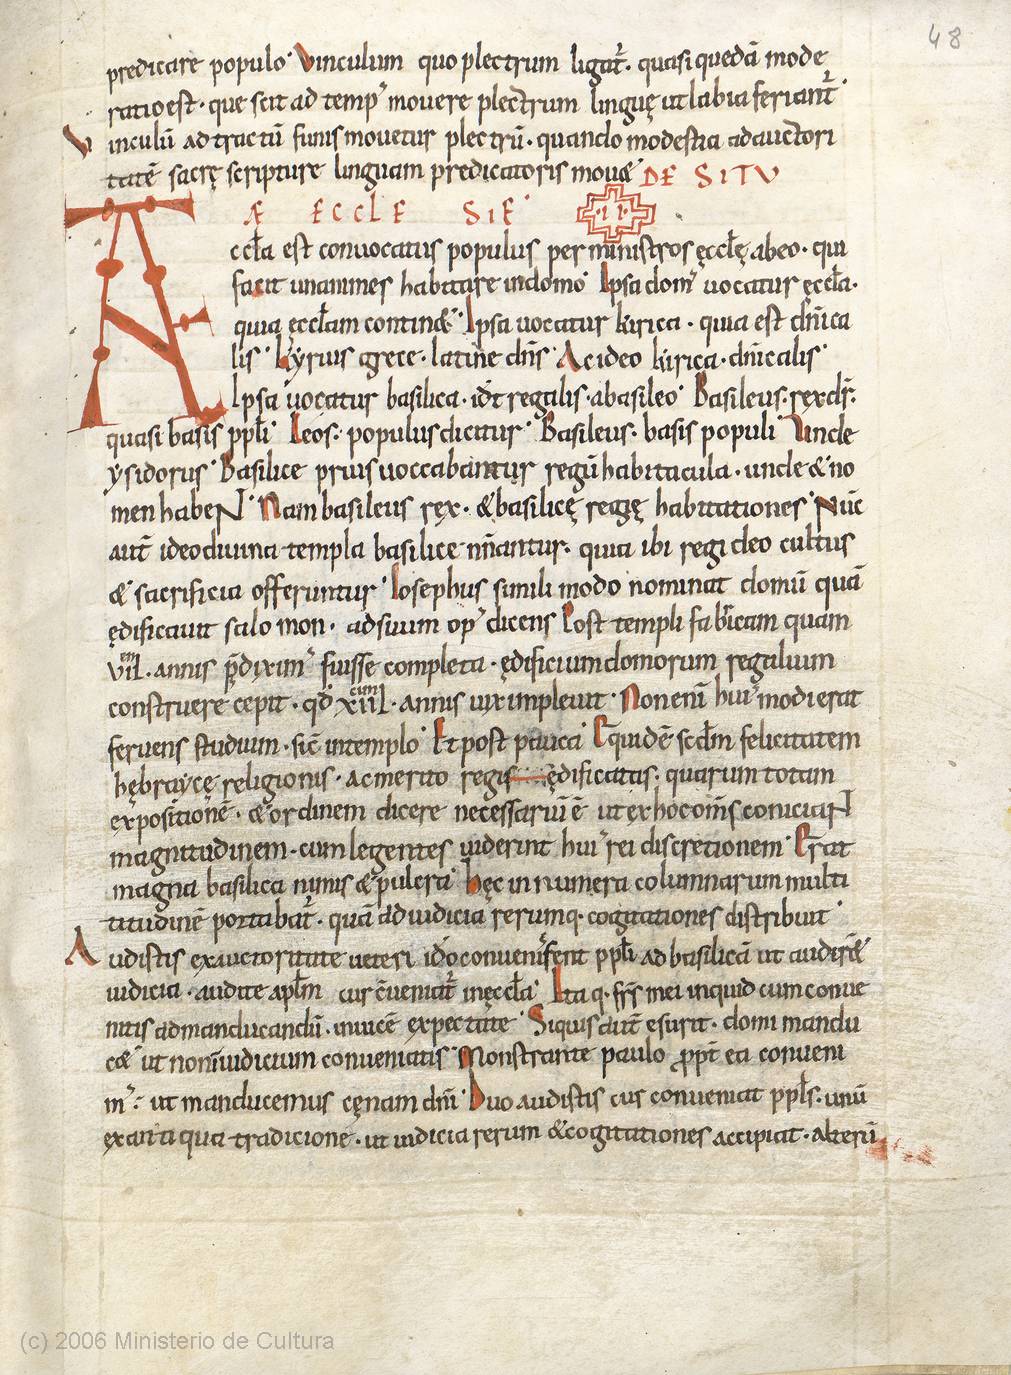 48
predicare populo· Vinculum quo plectrum ligat᷑· quasi quedā mode
ratio est· que scit ad temp᾽ mouere plectrum linguę ut labia feriant᷑·
Vinculū ad tractū funis mouetur plectrū· quando modestia ad auctori
tatē sacrę scripture linguam predicatoris mouet DE SITU
Æ ECCLESIE· ·II·
AEccła est conuocatus populus per ministros ęccłę abeo· qui
facit unanimes habitare in domo· Ipsa dom᾽ uocatur ęccła·
quia ęccłam continet· Ipsa uocatur kirica· quia est dn̄ica
lis· Kyrius grece· latine dn̄s· Ac ideo kirica· dn̄icalis·
Ipsa uocatur basilica· id̄t regalis· abasileo· Basileus· rex dr̄·
quasi basis ppłi· Leos· populus dicitur· Basileus· basis populi· Unde
ysidorus· Basilice prius uoccabantur regū habitacula· unde & no
men habeNt· Nam basileus rex· & basilicę regię habitationes· Nūc
aut̄ ideo diuina templa basilice nn̄antur· quia ibi regi deo cultus
& sacrificia offeruntur· Iosephus simili modo nominat domū quā
ędificauit salomon· ad suum op᾽ dicens Post templi fabricam quam
VIII· annis p̄dixim᾽ fuisse completa· ędificium domorum regalium
construere cepit· qđ XIIII· annis uix impleuit· Non enī hui᾽ modi erat
feruens studium· sic̄ in templo· Et post pauca· Equidē scd̄m felicitatem
hębraycę religionis· ac merito regis ędificatas· quarum totam
expositionē· & ordinem dicere necessariū ē ut ex hoc om̄s coniciaNt
magnitudinem· cum legentes uiderint hui᾽ rei discretionem· Erat
magna basilica nimis & pulcra· hęc in numera columnarum multi
titudinē portabat᷑· quā ad iudicia rerumq· cogitationes distribuit·
Audistis ex auctoritate ueteri id̄o conuenirent ppłi ad basilicā ut audiret
iudicia· audite apłm cur c̄ueniat᷑ in ęccła· Ita q· frs̄ mei inquid cum conue
nitis ad manducandū· inuicē expectate· Siquis aut̄ esurit· domi mandu
cet· ut non in iudicium conueniatis· Monstrante paulo propt̄ ea conueni
m᾽· ut manducemus cęnam dn̄i· Duo audistis cur conueniat ppłs· unū
ex antiqua tradicione· ut iudicia rerum & cogitationes accipiat· alterū
(c) 2006 Ministerio de Cultura